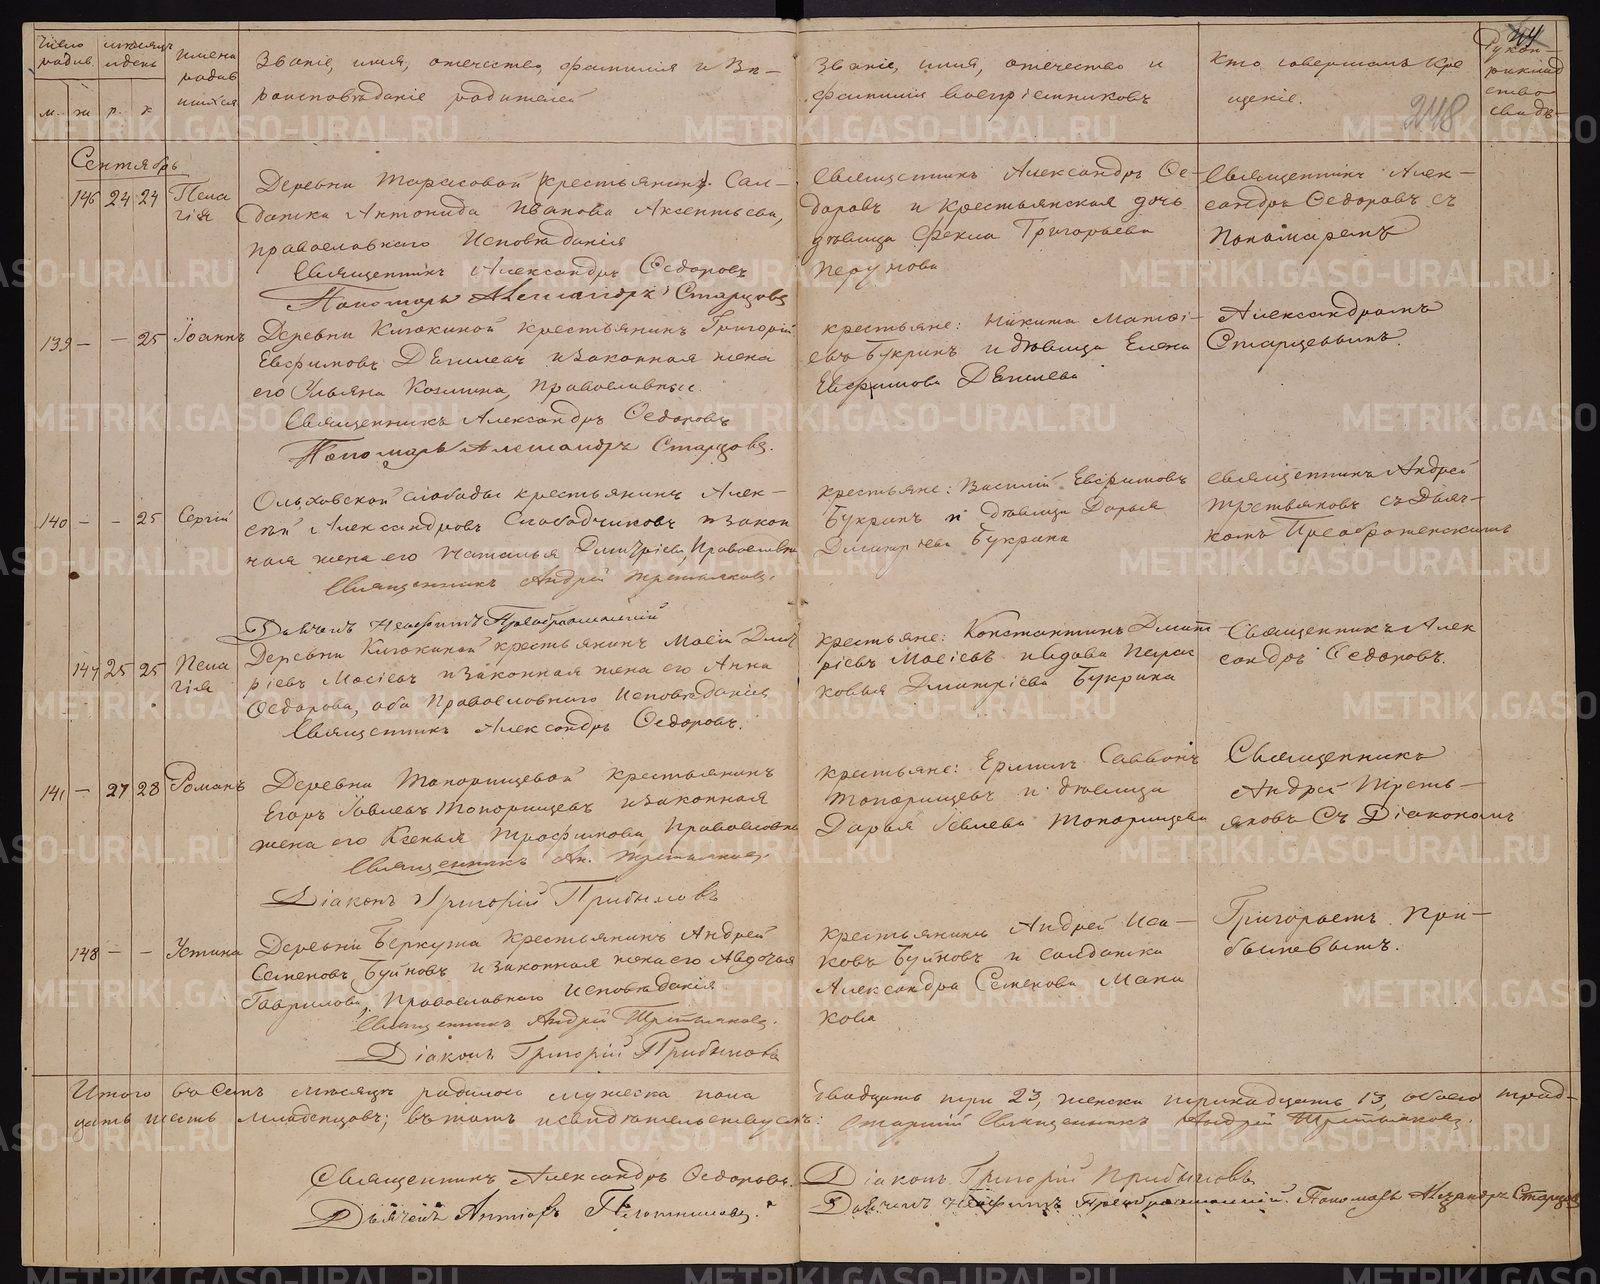 Число родив.
мѣсяцъ и день
Имена родив
шихся
Званіе, имя, отечество, фамилія и Вѣ-
роисповѣданіе родителей
Званіе, имя, отечество и
фамилія воспріемниковъ
Кто совершалъ кре
щеніе.
Рукоп-
риклад
ство
свидѣ-
44
248
м. ж р. к
Сентябрь
146 24 24 Пела
гія
Деревни Тарасовой крестьянинъ. Сол-
датка Антонида Иванова Аксентьева,
православнаго Исповѣданія
Священникъ Александръ Ѳедоровъ
Пономарь Александръ Старцовъ
Священникъ Александръ Ѳе-
доровъ и крестьянская дочь
дѣвица Фекла Григорьева
Перунова
Священникъ Алек-
сандръ Ѳедоровъ съ
Пономаремъ
139 — — 25 Іоаннъ
Деревни Кизкиной крестьянинъ Григорій
Евфимовъ Дѣмлевъ и законная жена
его Ульяна Козмина, Православные.
Священникъ Александръ Ѳедоровъ
Пономарь Александръ Старцовъ.
крестьяне: Никита Матѳі-
евъ Букринъ и дѣвица Елена
Евфимова Дѣмлева
Александромъ
Старцовымъ.
140 — — 25 Сергій
Ольховской слободы крестьянинъ Алек-
сѣй Александровъ Слободчиковъ и закон
ная жена его Наталья Дмитріева, Православн
Священникъ Андрей Третьяковъ.
Дьячекъ Неофитъ Преображенскій
крестьяне: Василій Евфимовъ
Букринъ и дѣвица Дарья
Дмитріева Букрина
Священникъ Андрей
Третьяковъ съ Дьяч-
комъ Преображенскимъ
147 25 25 Пела
гія
Деревни Кизкиной крестьянинъ Мосій Дмит
ріевъ Мосіевъ и законная жена его Анна
Ѳедорова, оба Православнаго Исповѣданія
Священникъ Александръ Ѳедоровъ.
крестьяне: Константинъ Дмит
ріевъ Мосіевъ и вдова Парас
ковья Дмитріева Букрина
Священникъ Алек
сандръ Ѳедоровъ.
141 — 27 28 Романъ
Деревни Топорищевой крестьянинъ
Егоръ Іовлевъ Топорищевъ и законная
жена его Ксенья Трофимова, Православн
Священникъ Ан. Третьяковъ.
Діаконъ Григорій Прибылевъ
крестьяне: Ермилъ Саввинъ
Топорищевъ и дѣвица
Дарья Іовлева Топорищева
Священникъ
Андрей Треть-
яковъ Съ Діакономъ
148 — — Устина
Деревни Беркута крестьянинъ Андрей
Семеновъ Буйновъ и законная жена его Авдотья
Гаврилова, Православнаго Исповѣданія
Священникъ Андрей Третьяковъ.
Діаконъ Григорій Прибылевъ
крестьянинъ Андрей Иса-
ковъ Буйновъ и солдатка
Александра Семенова Мана
кова
Григорьемъ При-
былевымъ.
Итого въ Семъ мѣсяцѣ родилось мужеска пола двадцать три 23, женска тринадцать 13, обоего трид-
цать шесть младенцовъ; въ томъ и свидѣтельствуемъ: Старшій Священникъ Андрей Третьяковъ.
Священникъ Александръ Ѳедоровъ. Діаконъ Григорій Прибылевъ
Дьячекъ Антіовъ Дьячекъ Неофитъ Преображенскій. Пономарь Александръ Старцовъ
METRIKI.GASO-URAL.RU